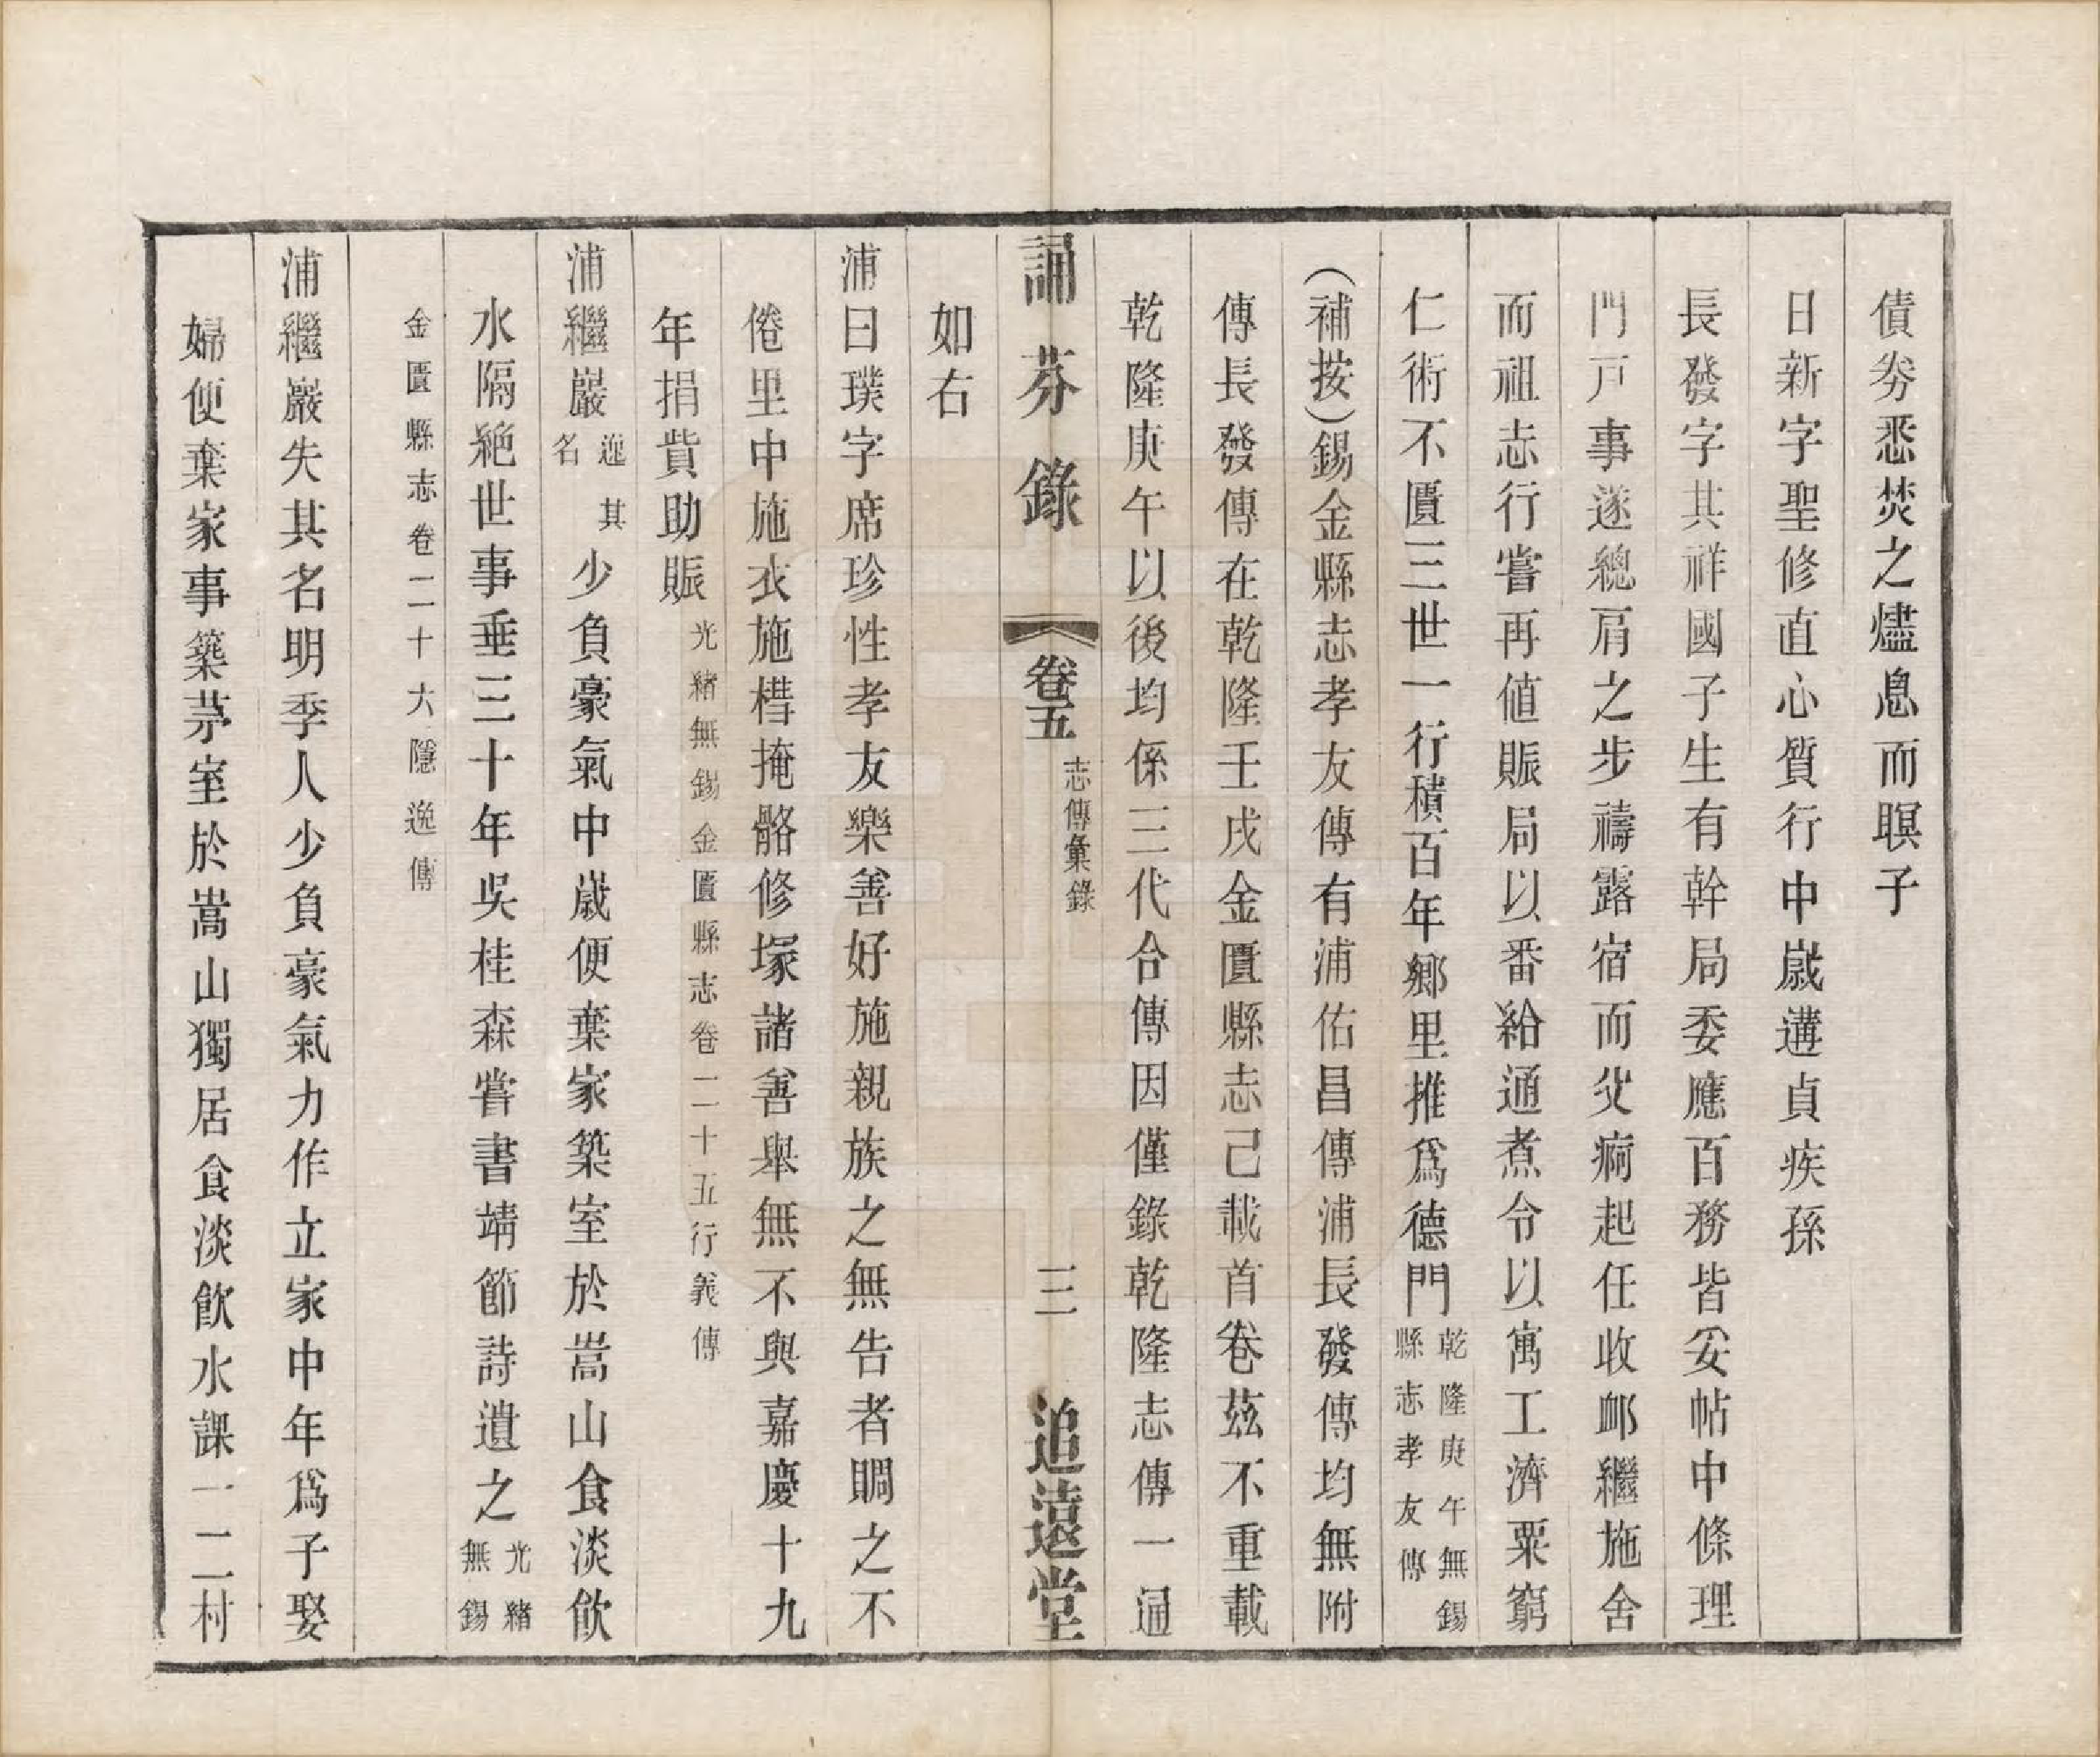 債劵悉焚之燼息而瞑子
日新字聖修直心質行中歲遘貞疾孫
長發字其祥國子生有幹局委應百務皆安帖中條理
門戸事遂總肩之步禱露宿而父痾起任收䘏繼施舍
而祖志行嘗再值賑局以番給通煮令以寓工濟粟窮
仁術不匱三世一行積百年鄉里推爲德門乾隆庚午無錫縣志孝友傳
(補按)錫金縣志孝友傳有浦佑昌傳浦長發傳均無附
傳長發傳在乾隆壬戌金匱縣志己載首卷茲不重載
乾隆庚午以後均係三代合傳因僅錄乾隆志傳一通
如右
誦芬錄 卷五 志傳彙錄 三 追遠堂
浦日璞字席珍性孝友樂善好施親族之無告者賙之不
倦里中施衣施槥掩骼修塚諸善舉無不與嘉慶十九
年捐貲助賑光緒無錫金匱縣志卷二十五行義傳
浦繼巖逸其名少負豪氣中歲便棄家築室於嵩山食淡飲
水隔絶世事垂三十年吳桂森嘗書靖節詩遺之光緒無錫
金匱縣志卷二十六隱逸傳
浦繼巖失其名明季人少負豪氣力作立家中年爲子娶
婦便棄家事築茅室於嵩山獨居食淡飲水課一二村